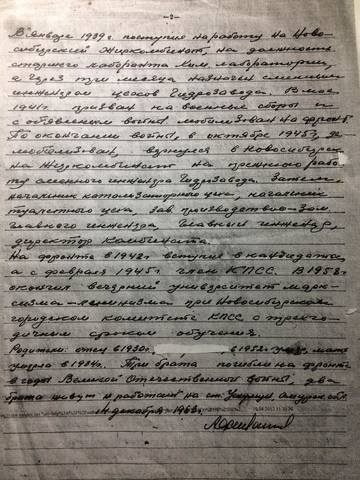 -2-
В январе 1939 г. поступил на работу на Ново-
сибирский Жиркомбинат, на должность
старшего лаборанта Хим. лаборатории,
а через три месяца назначен сменным
инженером цехов Гидрозавода. В мае
1941 г. призван на военные сборы и
с объявлением войны мобилизован на фронт.
По окончании войны, в октябре 1945 г. де-
мобилизован вернулся в Новосибирск
на Жиркомбинат на прежнюю рабо-
ту сменного инженера Гидрозавода. Затем
начальник катализаторного цеха, начальник
туалетного цеха, зав. производством-зам
главного инженера, главный инженер,
директор Комбината.
На фронте в 1942 г. вступил в кандидаты,
а с февраля 1945 г. член КПСС. В 1958 г.
окончил вечерний университет марк-
сизма-ленинизма при Новосибирском
городском комитете КПСС с трехго-
дичным сроком обучения.
Родители: отец в 1930 г., в 1952 г. умер, мать
умерла в 1934 г. Три брата погибли на фронте
в годы Великой Отечественной войны, два
брата живут и работают на ст. Амурск. обл.
4 декабря 1963 г.